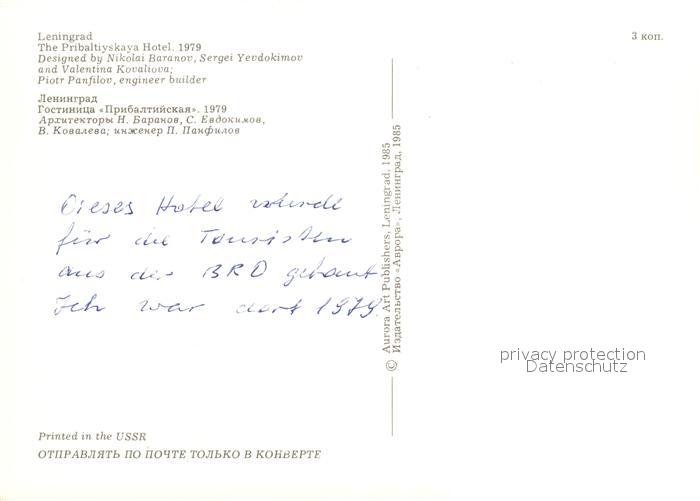 Leningrad
The Pribaltiyskaya Hotel. 1979
Designed by Nikolai Baranov, Sergei Yevdokimov
and Valentina Kovaliova;
Piotr Panfilov, engineer builder
Ленинград
Гостиница «Прибалтийская». 1979
Архитекторы Н. Баранов, С. Евдокимов,
В. Ковалева; инженер П. Панфилов
3 коп.
Dieses Hotel wurde
für die Touristen
aus der BRD gebaut
Ich war dort 1979.
© Aurora Art Publishers, Leningrad, 1985
Издательство «Аврора», Ленинград, 1985
privacy protection
Datenschutz
Printed in the USSR
ОТПРАВЛЯТЬ ПО ПОЧТЕ ТОЛЬКО В КОНВЕРТЕ